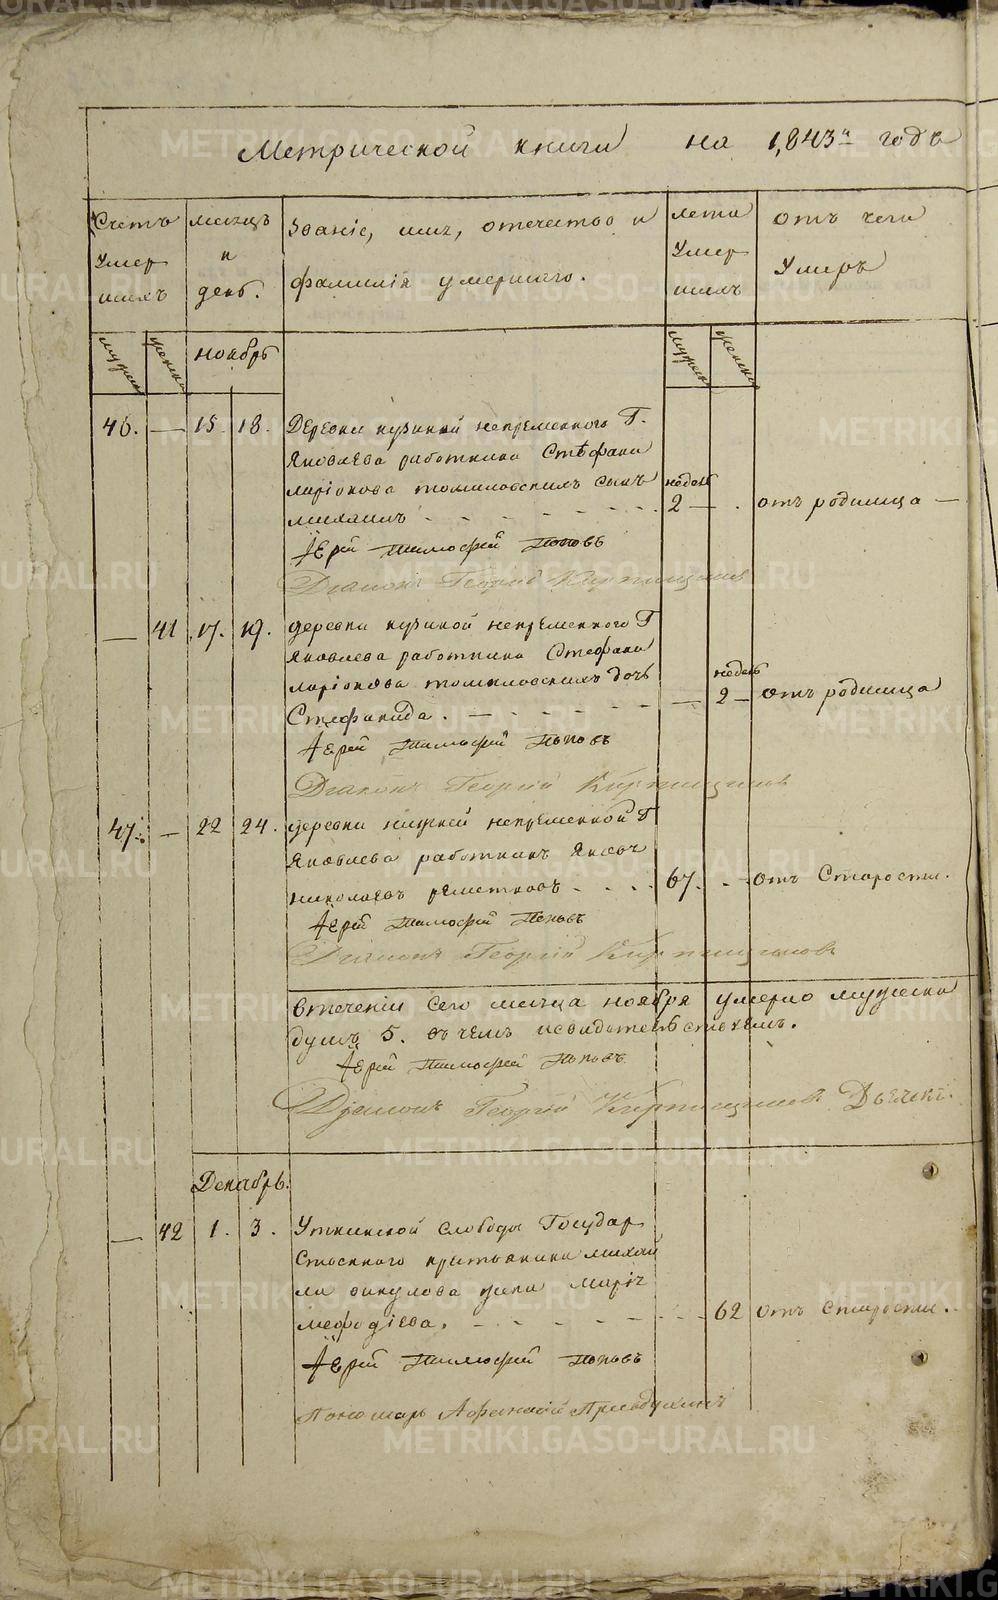 Метрической книги на 1,843й годъ
Счетъ умер шихъ
мѣсяцъ и день.
Званіе, имя, отечество и фамилія умершаго.
лета умер шихъ
отъ чего умеръ
мужеск женска
ноябрь
мужеск женска
46. — 15. 18. Деревни кузиной непремѣннаго Г.
Яковлева работника Стефана
ларіонова томиловскихъ сынъ недель
михаилъ - - - - - - - 2 — . отъ родимца —
Іерей Тимофей Поповъ
Діаконъ Георгій Кирпищиковъ
— 41 17. 19. деревни кузиной непремѣннаго Г
Яковлева работника Стефана
ларіонова томиловскихъ дочь недель
Стефанида. — - - - - - — 2 — отъ родимца
Іерей Тимофей Поповъ
Діаконъ Георгій Кирпищиковъ
47. — 22 24. деревни нижней непремѣнной Г
Яковлева работникъ
николаевъ решетковъ - - - - 67. - - отъ Старости.
Іерей Тимофей Поповъ
Діаконъ Георгій Кирпищиковъ
Втеченіи сего месяца ноября умерло мужеска
душъ 5. въ чемъ и свидетельствуемъ.
Іерей Тимофей Поповъ
Діаконъ Георгій Кирпищиковъ
Декабрь.
— 42 1. 3. Уткинской слободы Государ
ственного крестьянина михай
ла викулова жена Марія
мефодіева. - - - - - - - - 62 отъ старости.
Іерей Тимофей Поповъ
Пономарь Афанасій
METRIKI.GASO-URAL.RU